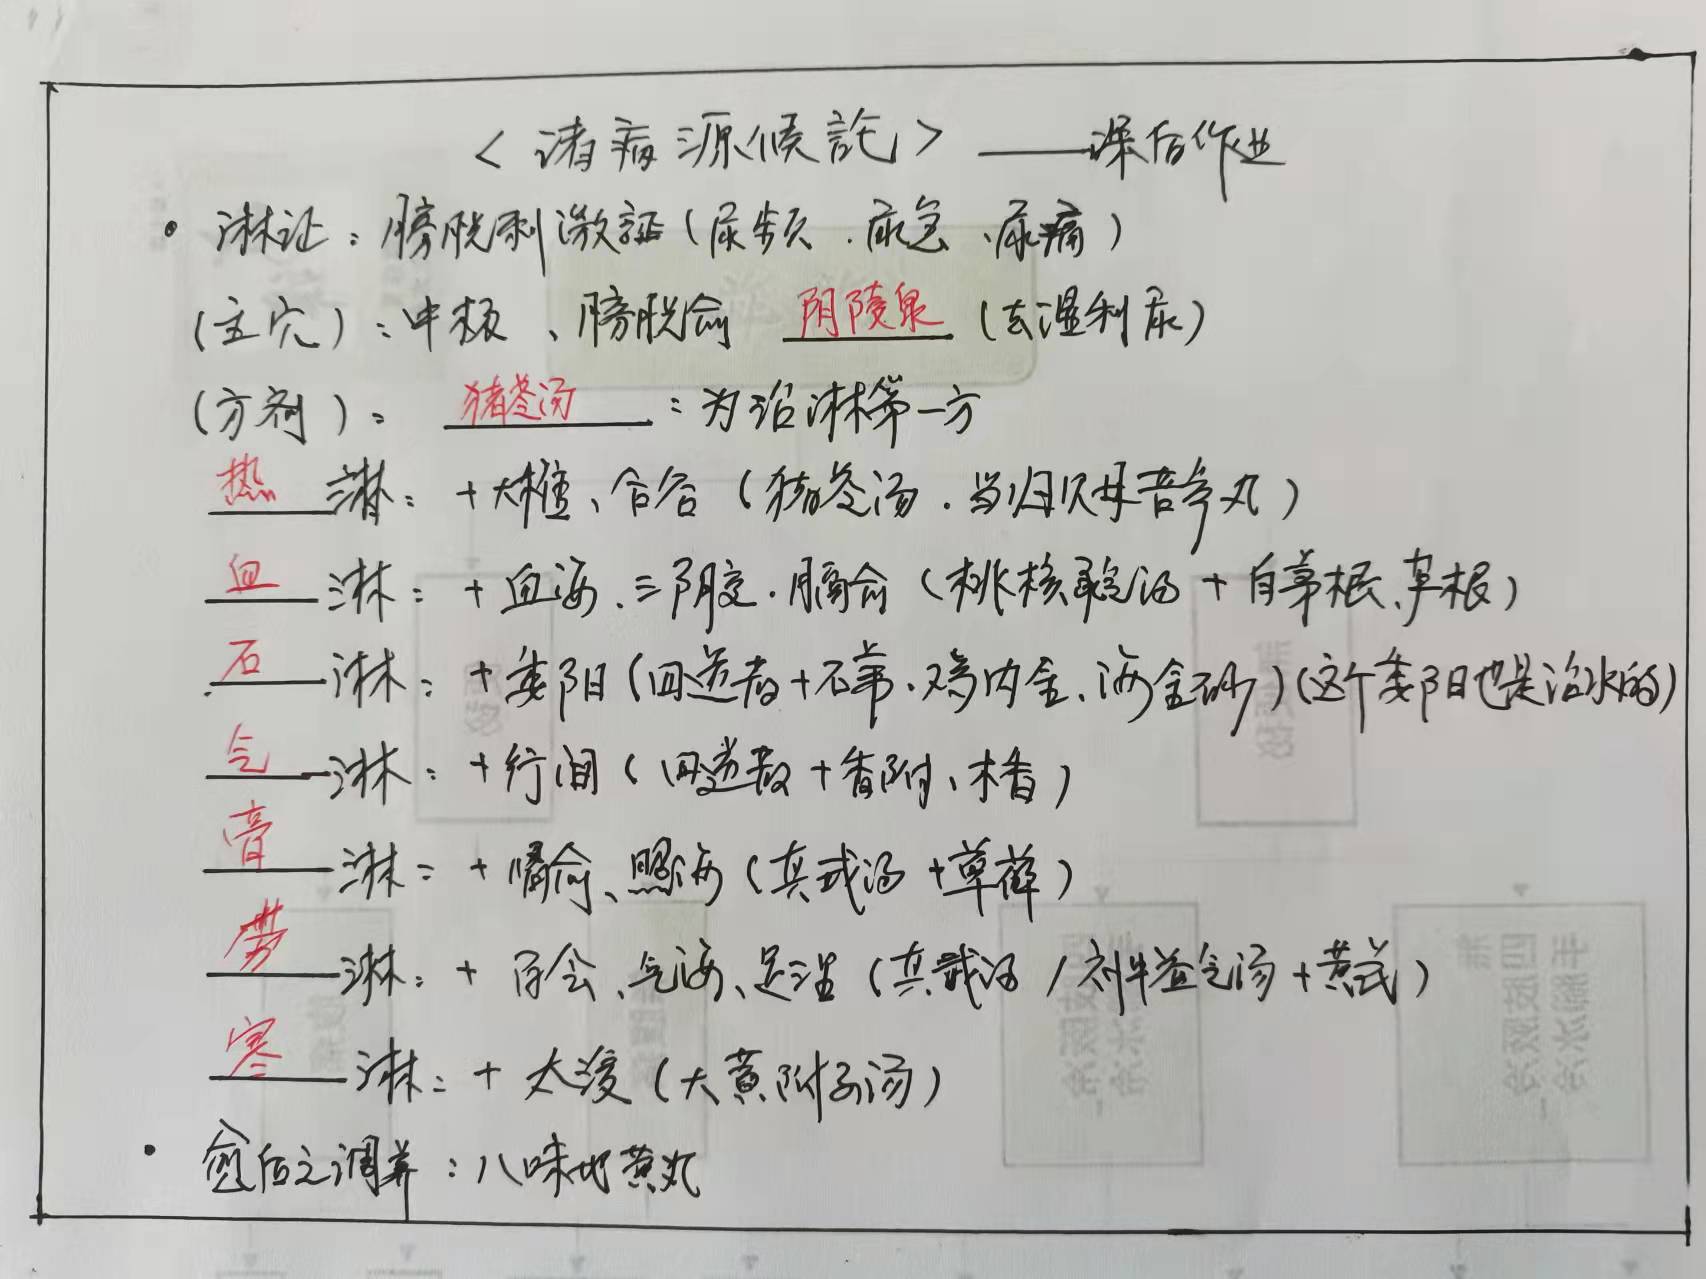 <诸病源候论>——课后作业
• 淋证：膀胱刺激証（尿频、尿急、尿痛）
（主穴）：中极、膀胱俞 阴陵泉（去湿利尿）
（方剂）： 猪苓汤：为治淋第一方
热淋：+大椎、合谷（猪苓汤、当归贝母苦参丸）
血淋：+血海、三阴交、膈俞（桃核承气汤+白茅根、茅根）
石淋：+委阳（四逆散+石苇、鸡内金、海金砂）（这个委阳也是治水的）
气淋：+行间（四逆散+香附、木香）
膏淋：+肾俞、照海（真武汤+萆薢）
劳淋：+百会、气海、足三里（真武汤/补中益气汤+黄芪）
寒淋：+太溪（大黄附子汤）
• 愈后之调养：八味地黄丸